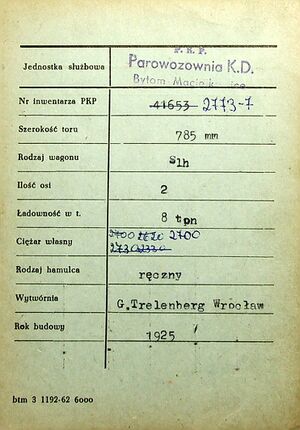 P. K. P.
Jednostka służbowa Parowozownia K.D.
Bytom
Nr inwentarza PKP 41653 2773-7
Szerokość toru 785 mm
Rodzaj wagonu Slh
Ilość osi 2
Ładowność w t. 8 tpn
Ciężar własny 2700
Rodzaj hamulca ręczny
Wytwórnia G.Trelenberg Wrocław
Rok budowy 1925
btm 3 1192-62 6000